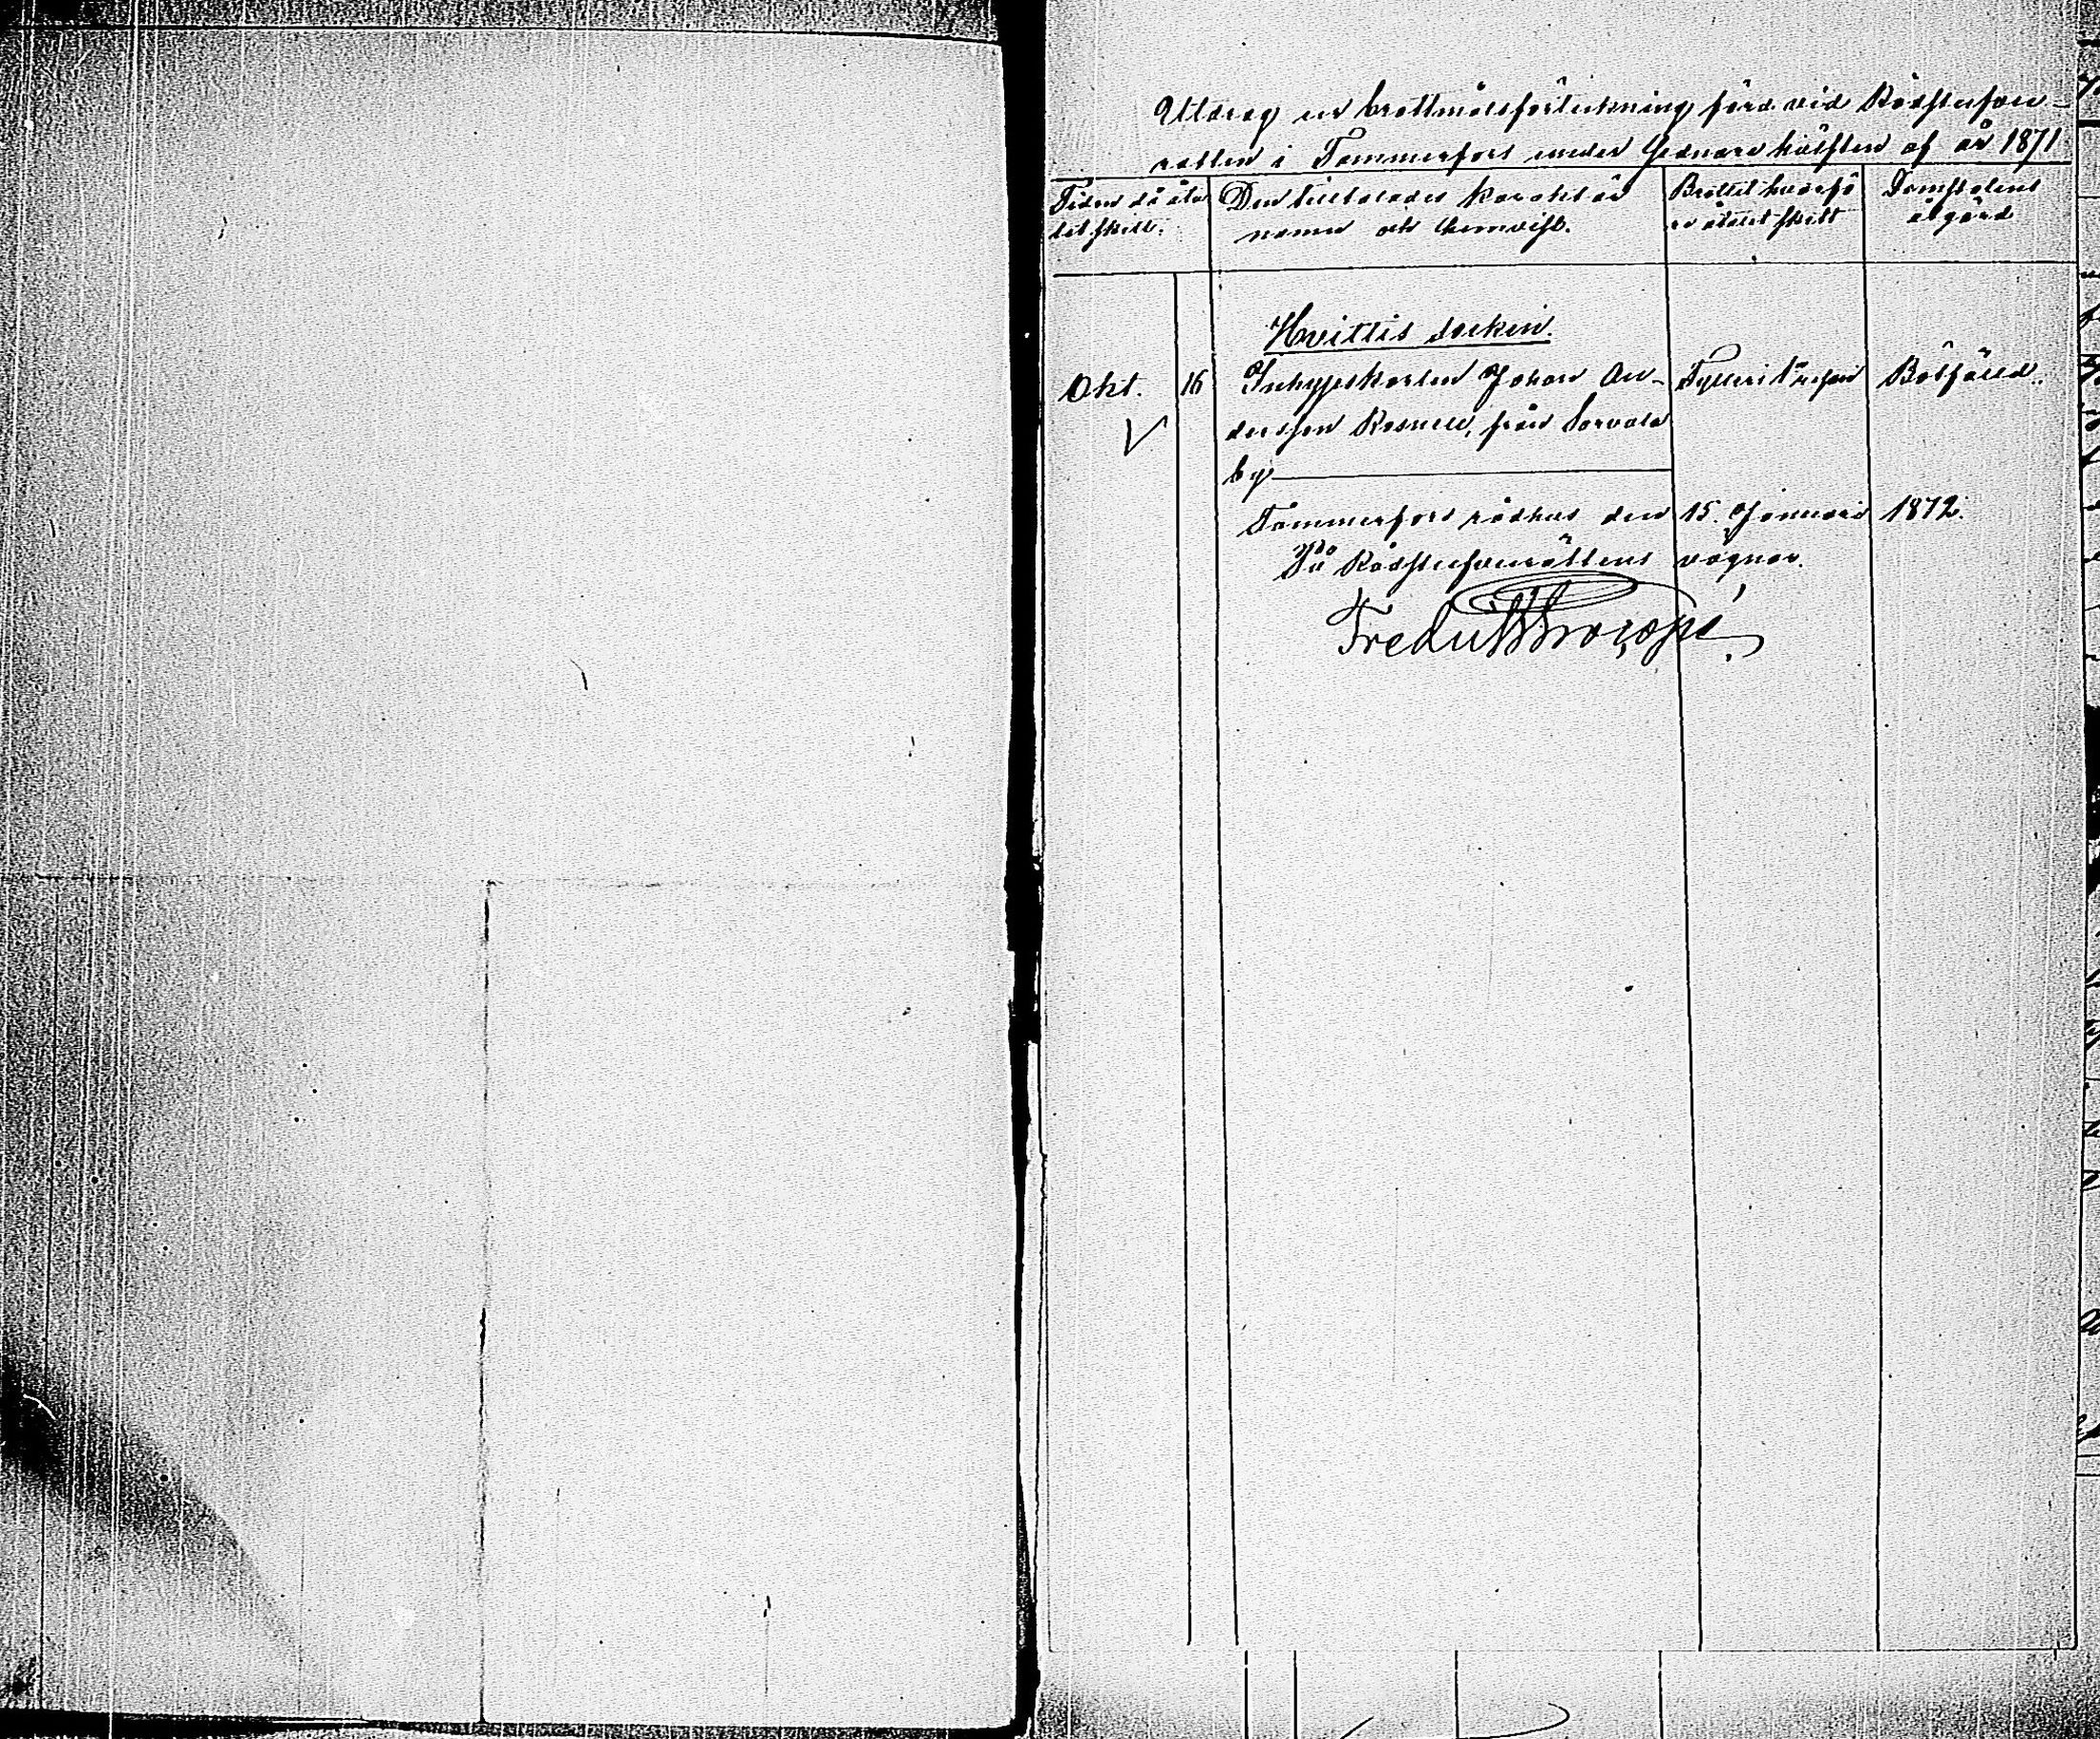 Utdrag ur brottmålsförteckning förd vid Rådstufvu-
rätten i Tammerfors under sednare hälften af år 1871
Tiden då åta-
let skett.
Den tilltalades karaktär
namn och hemvist.
Brottet hvarfö
re åtalet skett
Domstolens
åtgärd
Hvittis socken.
Okt. 16 Inhyseskarlen Johan An- Fylleri Bötfälld.
dersson från Sorvola
by
Tammerfors rådhus den 15. Januari 1872.
På Rådstufvurättens vägnar.
Fredrik Procopé